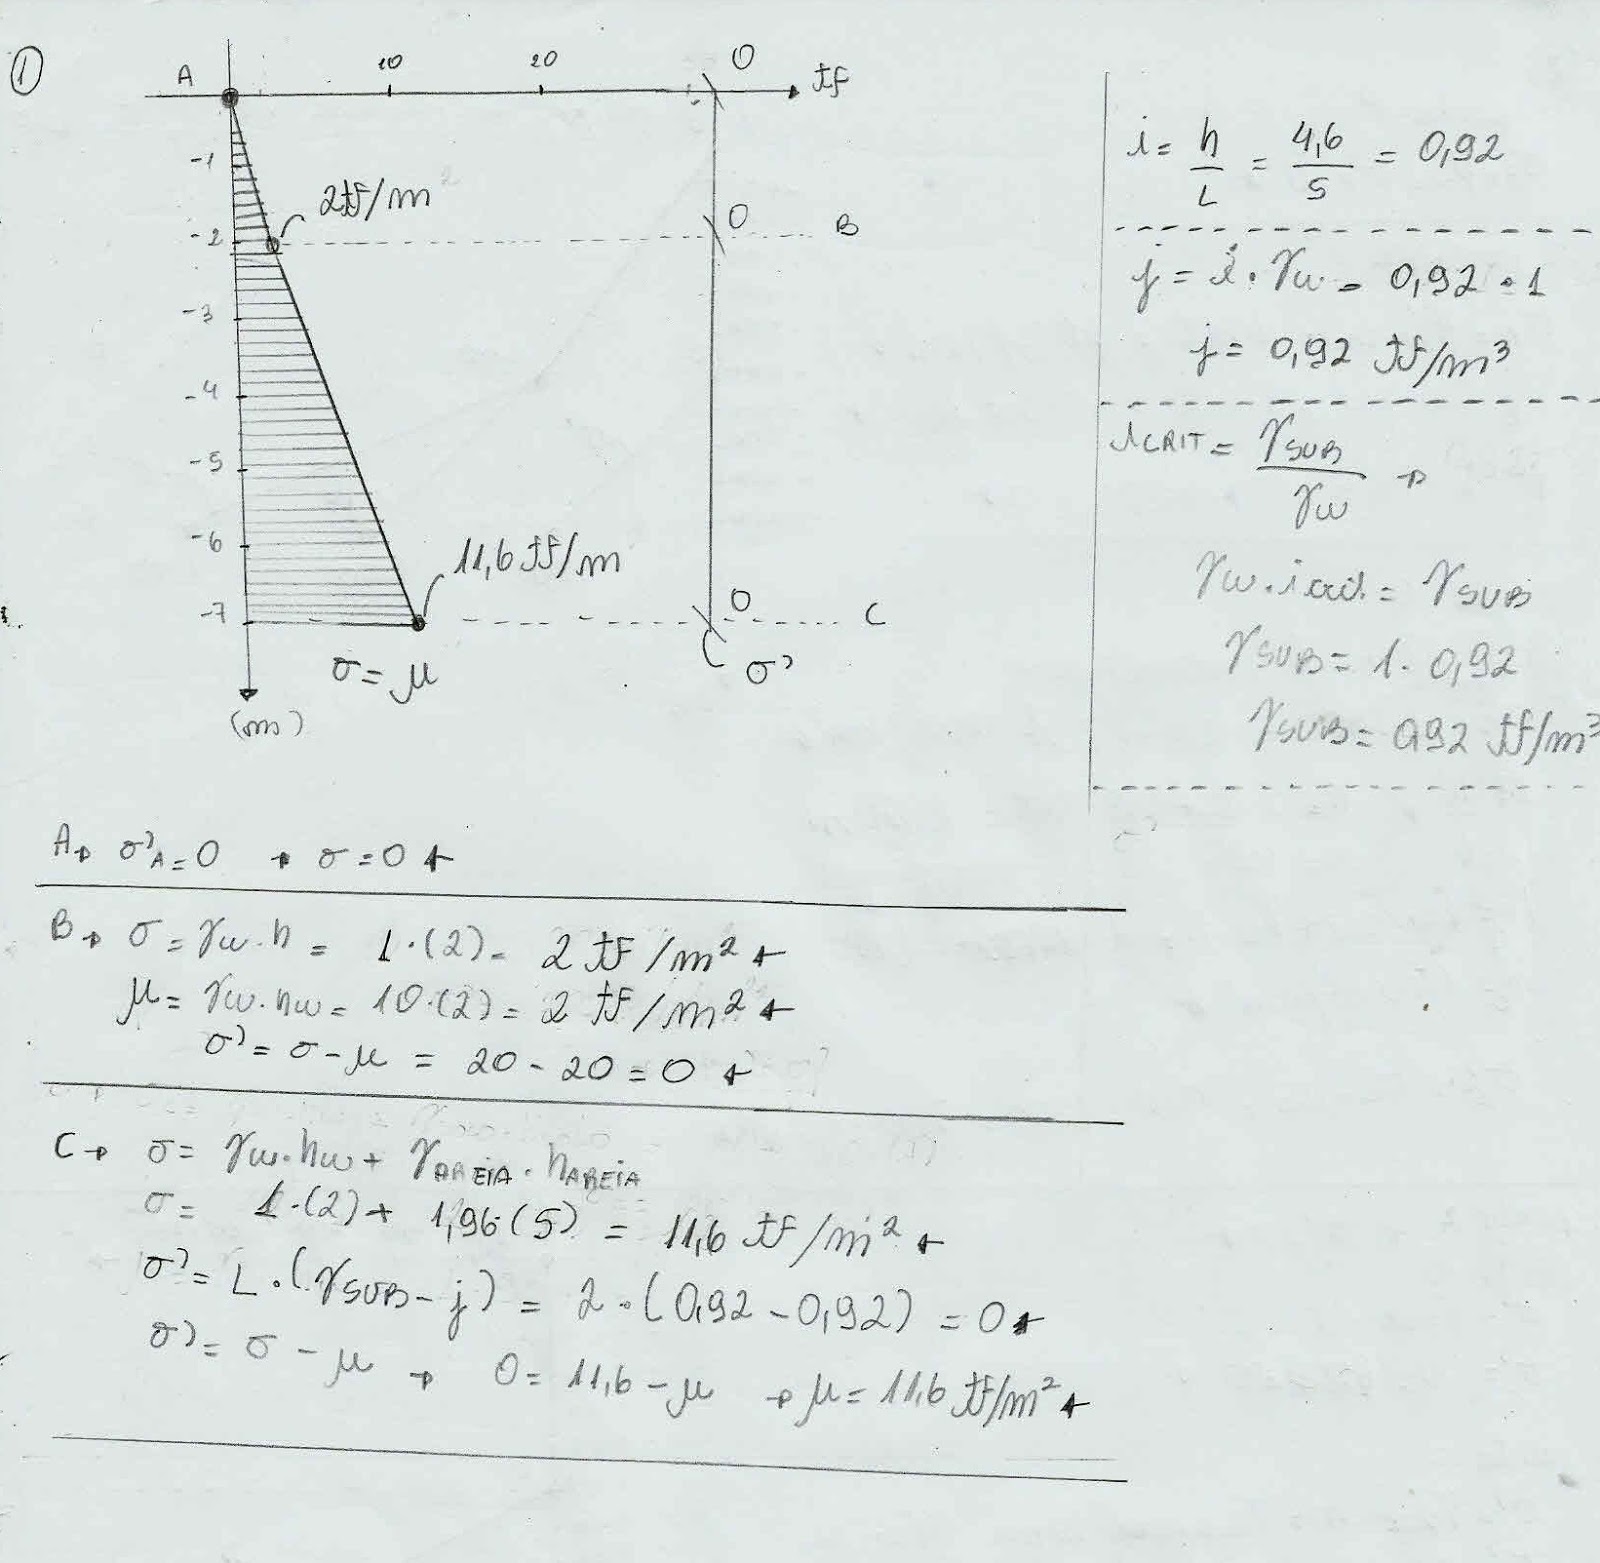 1
A 10 20 0 tf
-1
2tf/m²
-2 0 B
-3
-4
-5
-6
11,6 tf/m
-7 0 C
σ = μ σ'
(m)
i = h/L = 4,6/5 = 0,92
j = i · γw = 0,92 · 1
j = 0,92 tf/m³
iCRIT = γSUB/γw →
γw · icrit. = γSUB
γSUB = 1 · 0,92
γSUB = 0,92 tf/m³
A → σ'A = 0 → σ = 0
B → σ = γw · h = 1 · (2) = 2 tf/m²
μ = γw · hw = 10 · (2) = 2 tf/m²
σ' = σ - μ = 20 - 20 = 0
C → σ = γw · hw + γAREIA · hAREIA
σ = 1 · (2) + 1,96 (5) = 11,6 tf/m²
σ' = L · (γSUB - j) = 2 · (0,92 - 0,92) = 0
σ' = σ - μ → 0 = 11,6 - μ → μ = 11,6 tf/m²